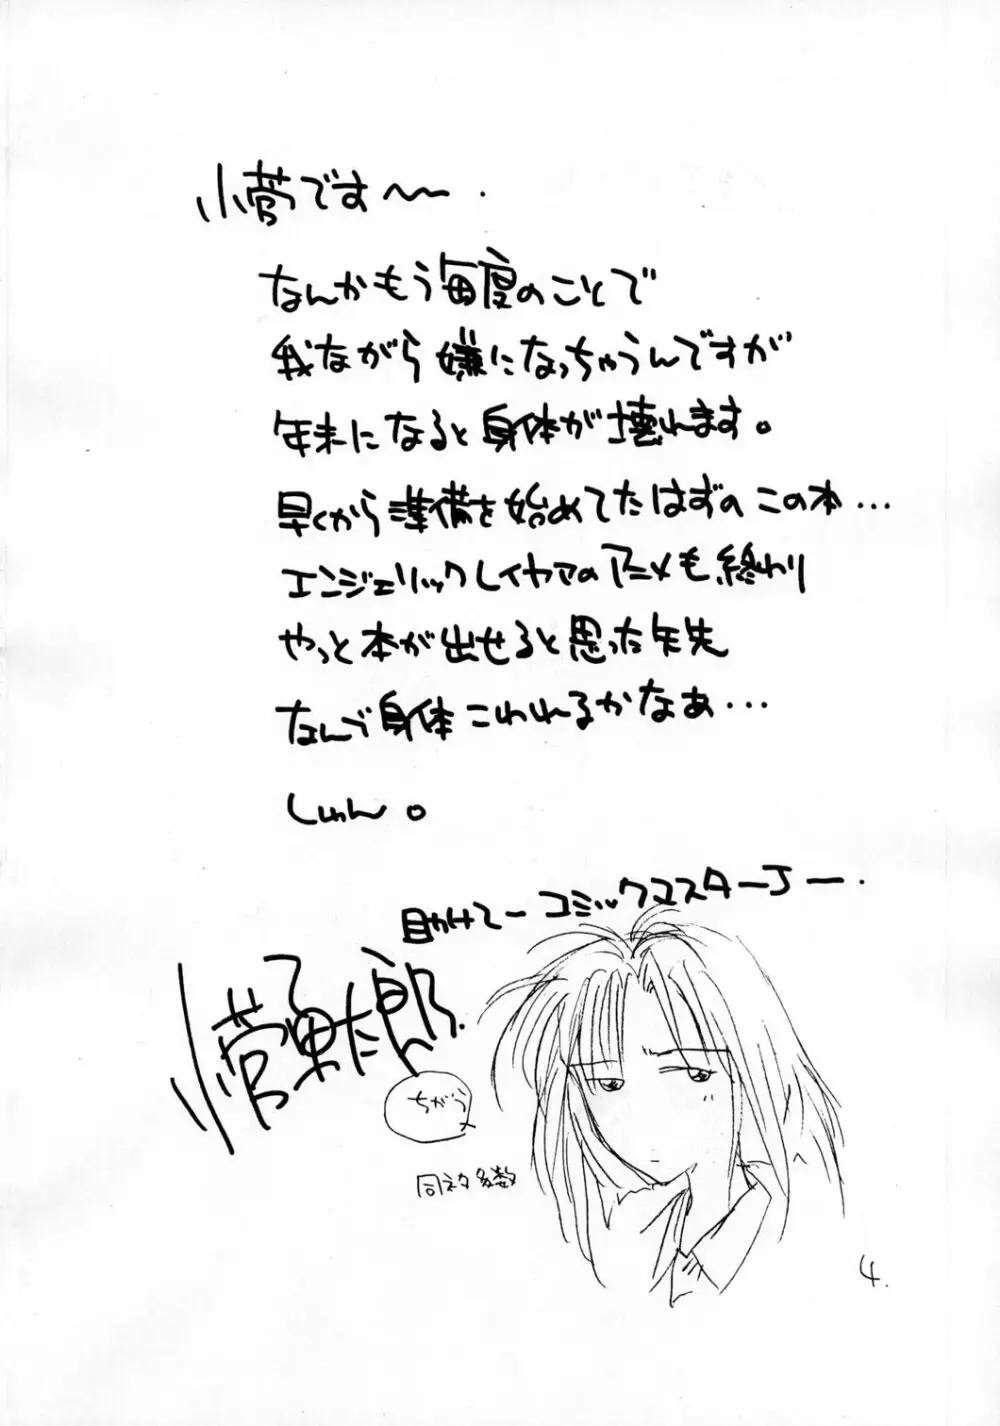 小菅です〜.
なんかもう毎度のことで
我ながら嫌になっちゃうんですが
年末になると身体が壊れます。
早くから準備を始めてたはずのこの本...
エンジェリックレイヤアのアニメも終わり
やっと本が出せると思った矢先
なんで身体こわれるかなあ...
しゅん。
助けてーコミックマスターJー.
小菅勇太郎.
ちがう
同ネタ多数
4.